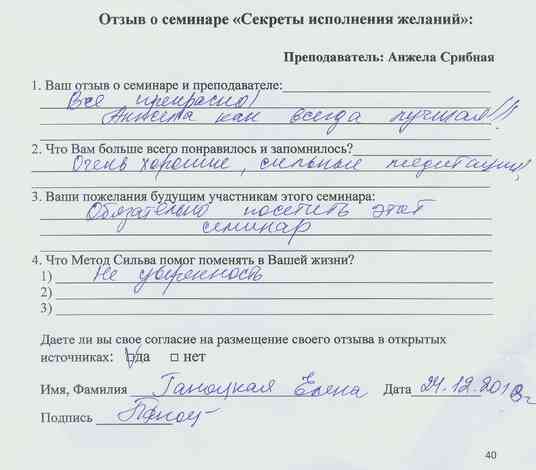 Отзыв о семинаре «Секреты исполнения желаний»:
Преподаватель: Анжела Срибная
1. Ваш отзыв о семинаре и преподавателе:
Все прекрасно!
Анжела как всегда лучшая!!!
2. Что Вам больше всего понравилось и запомнилось?
Очень хорошие, сильные медитации,
3. Ваши пожелания будущим участникам этого семинара:
Обязательно посетить этот
семинар
4. Что Метод Сильва помог поменять в Вашей жизни?
1) Не уверенность
2)
3)
Даете ли вы свое согласие на размещение своего отзыва в открытых
источниках: да нет
Имя, Фамилия Елена Дата 24.12.
Подпись
40